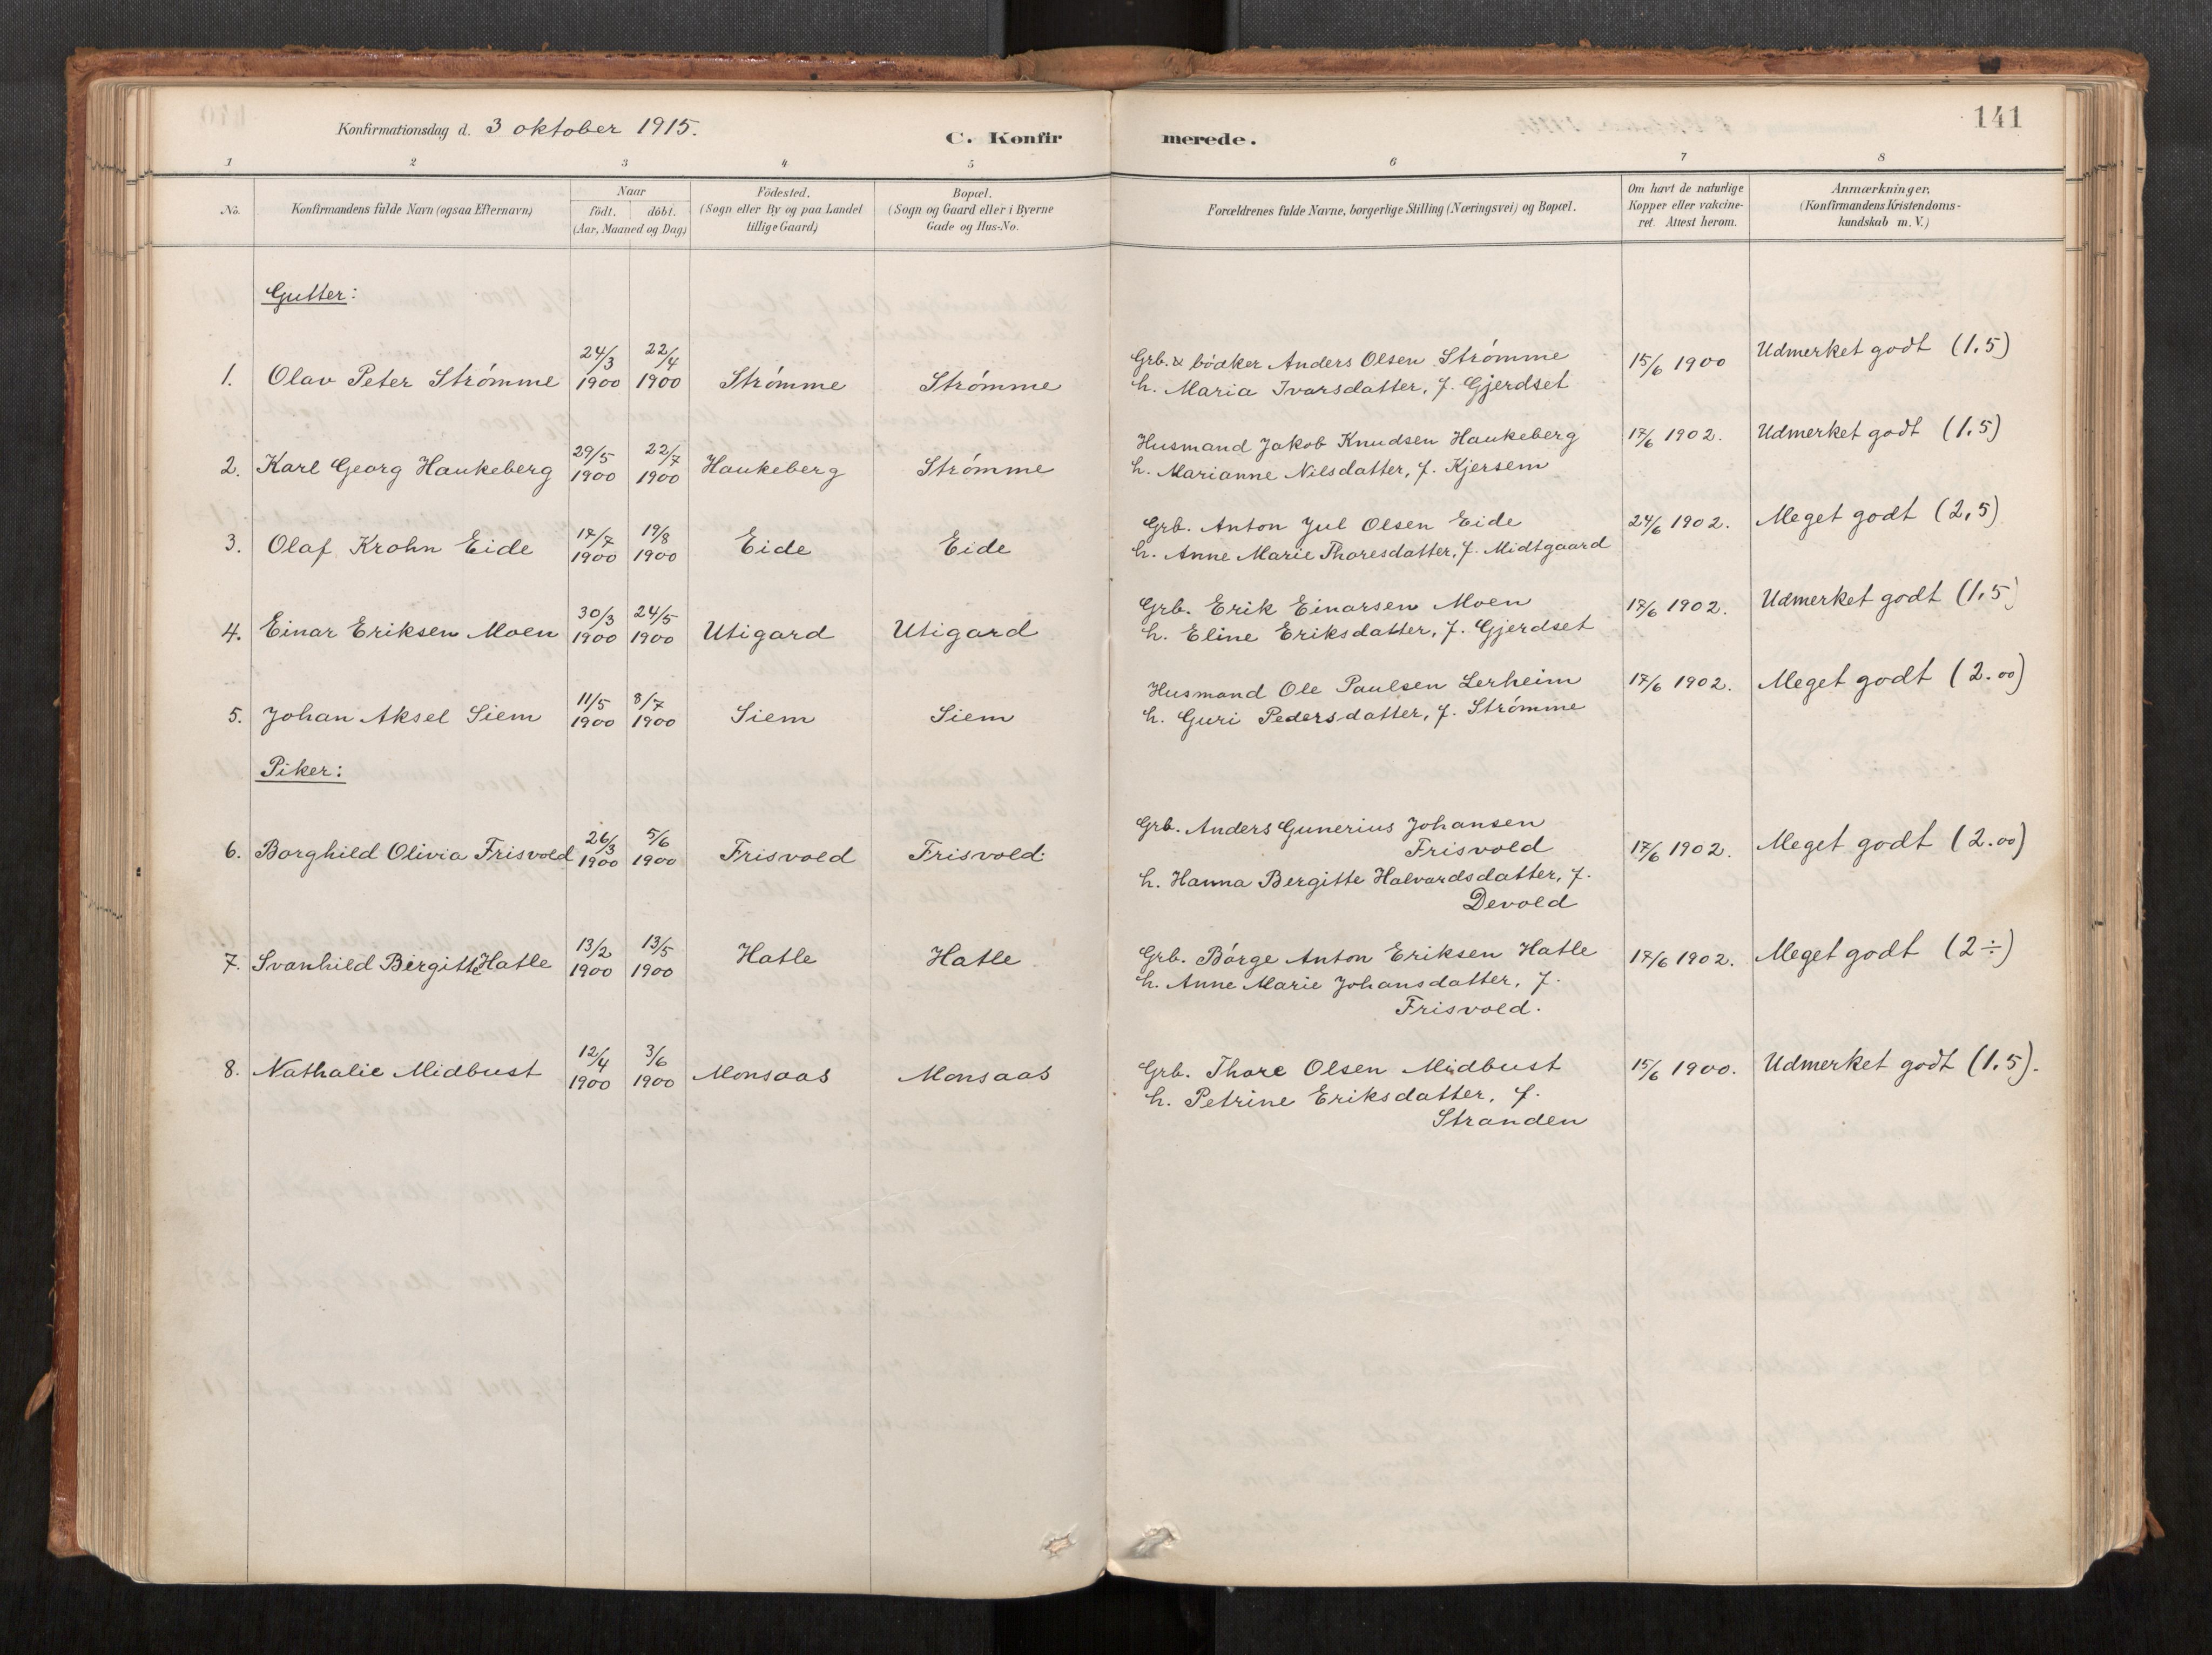 141
Konfirmationsdag d. 3 oktober 1915.
C. Konfirmerede.
1 2 3 4 5 6 7 8
No.
Konfirmandens fulde Navn (ogsaa Efternavn)
Naar
födt. döbt.
(Aar, Maaned og Dag)
Födested.
(Sogn eller By og paa Landet
tillige Gaard)
Bopæl.
(Sogn og Gaard eller i Byerne
Gade og Hus-No.
Forældrenes fulde Navne, borgerlige Stilling (Næringsvei) og Bopæl.
Om havt de naturlige
Kopper eller vakcine-
ret. Attest herom.
Anmærkninger,
(Konfirmandens Kristendoms-
kundskab m. V.)
Gutter:
1. Olav Peter Strómme 24/3 1900 22/4 1900 Strómme Strómme
Grb. & bódker Anders Olsen Strómme
h. Maria Ivarsdatter, f. Gjerdset
15/6 1900 Udmerket godt (1.5)
2. Karl Georg Haukeberg 29/5 1900 22/7 1900 Haukeberg Strómme
Husmand Jakob Knudsen Haukeberg
h. Marianne Nilsdatter, f. Kjersem
17/6 1902. Udmerket godt (1.5)
3. Olaf Krohn Eide 17/7 1900 19/8 1900 Eide Eide
Grb. Anton Jul Olsen Eide
h. Anne Marie Thoresdatter, f. Midtgaard
24/6 1902. Meget godt (2,5)
4. Einar Eriksen Moen 30/3 1900 24/5 1900 Utigard Utigard
Grb. Erik Einarsen Moen
h. Eline Eriksdatter, f. Gjerdset
17/6 1902. Udmerket godt (1.5)
5. Johan Aksel Siem 11/5 1900 8/7 1900 Siem Siem
Husmand Ole Paulsen Lerheim
h. Guri Pedersdatter, f. Strómme
17/6 1902. Meget godt (2.00)
Piker:
6. Borghild Olivia Frisvold 26/3 1900 5/6 1900 Frisvold Frisvold
Grb. Anders Gunerius Johansen
Frisvold
h. Hanna Bergitte Halvardsdatter, f.
Devold
17/6 1902. Meget godt (2.00)
7. Svanhild Bergitte Hatle 13/2 1900 13/5 1900 Hatle Hatle
Grb. Bórge Anton Eriksen Hatle
h. Anne Marie Johansdatter, f.
Frisvold.
17/6 1902. Meget godt (2÷)
8. Nathalie Midbust 12/4 1900 3/6 1900 Monsaas Monsaas
Grb. Thore Olsen Midbust
h. Petrine Eriksdatter, f.
Stranden
15/6 1900. Udmerket godt (1.5).